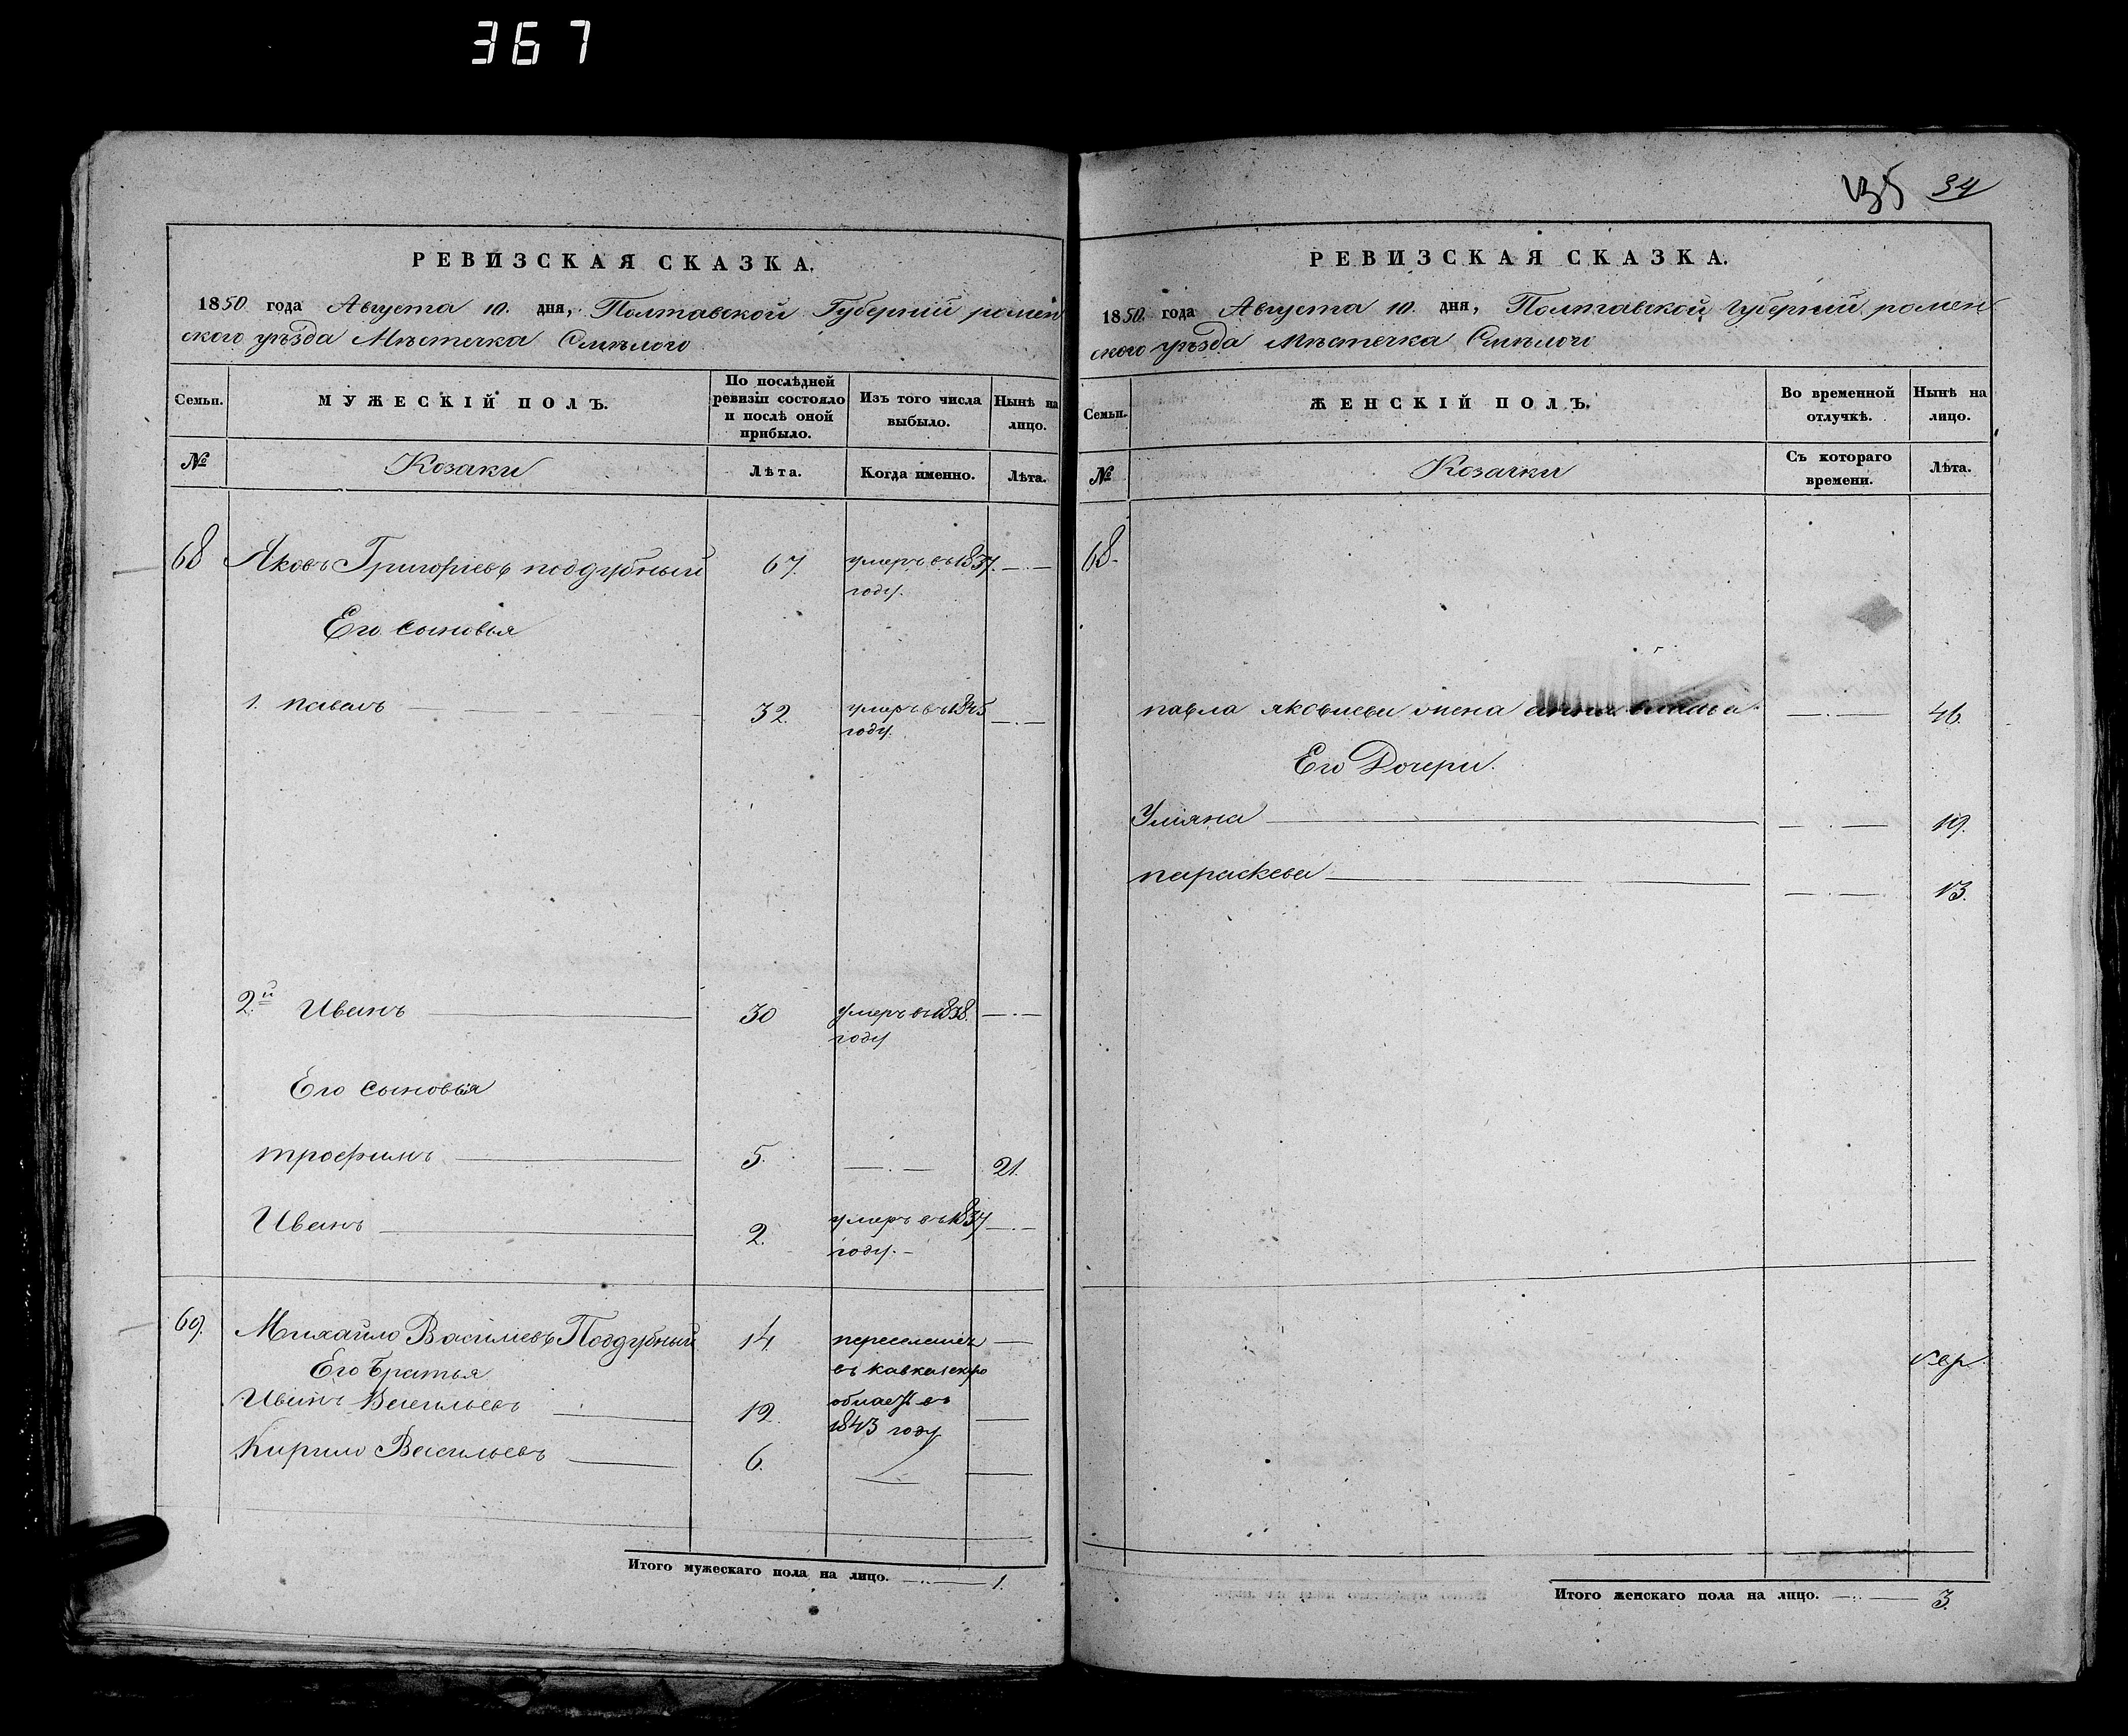 367
РЕВИЗСКАЯ СКАЗКА.
1850 года Августа 10. дня, Полтавской Губерніи ромен
ского уѣзда Мѣстечка Смѣлого
Семьи.
МУЖЕСКІЙ ПОЛЪ.
По послѣдней
ревизіи состояло
и послѣ оной
прибыло.
Изъ того числа
выбыло.
Нынѣ на
лицо.
№
Козаки
Лѣта.
Когда именно.
Лѣта.
68 Яковъ Григоріевъ поддубный 67. умеръ въ 1837.
году.
Его сыновья
1. павелъ 32. умеръ въ 1845
году.
2й Иванъ 30 умеръ въ 1838.
году
Его сыновья
трофимъ 5. 21.
Иванъ 2. умеръ въ 1837
году.
69. Михайло Василіевъ Поддубный 14 переселенъ
Его братья въ кавказскую
Иванъ Васильевъ 12. область въ
1843 году
Кирило Васильевъ 6.
Итого мужескаго пола на лицо. 1.
135 34
РЕВИЗСКАЯ СКАЗКА.
1850 года Августа 10. дня, Полтавской губерніи ромен
ского уѣзда Мѣстечка Смѣлого
Семьи.
ЖЕНСКІЙ ПОЛЪ.
Во временной
отлучкѣ.
Нынѣ на
лицо.
№
Козачки
Съ котораго
времени.
Лѣта.
68.
павла яковлева жена 46.
Его Дочери.
Уліяна 19.
параскева 13.
Итого женскаго пола на лицо. 3.